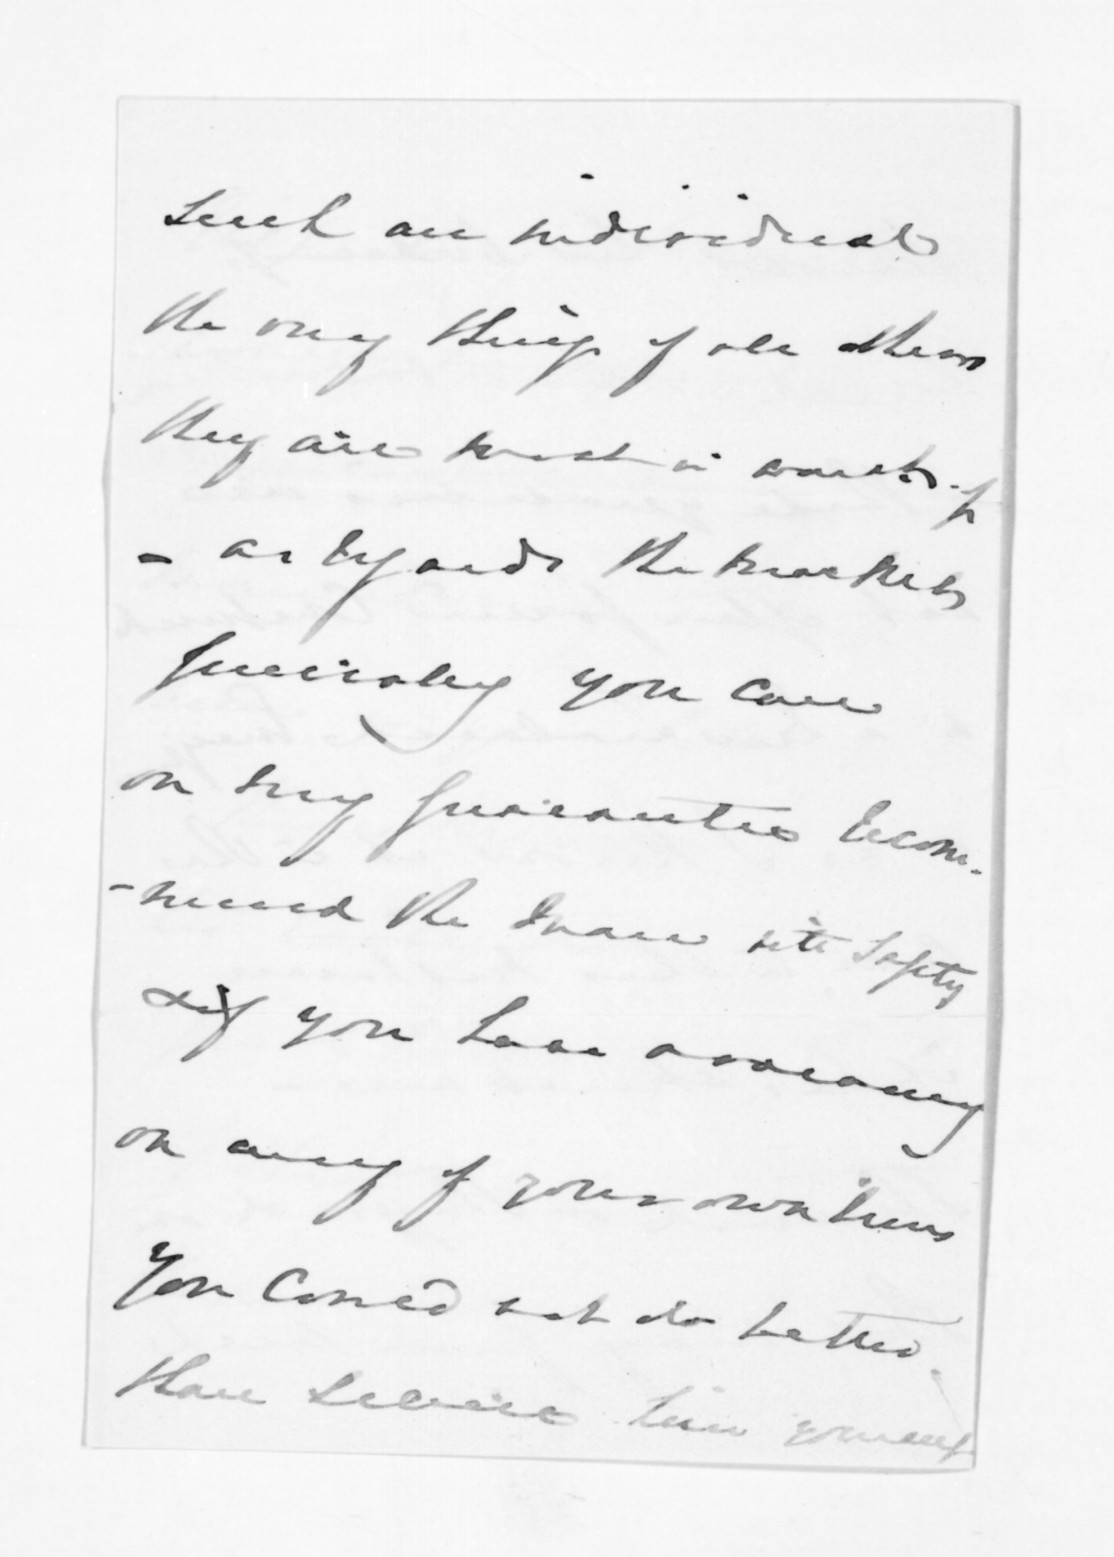 such an individual
the very thing of all others
they are most in want of
- as regards the markets
generally you can
on my guarantee recom-
-mend the man with safety
& if you have a vacancy
on any of your own runs
you could not do better
than secure him yourself